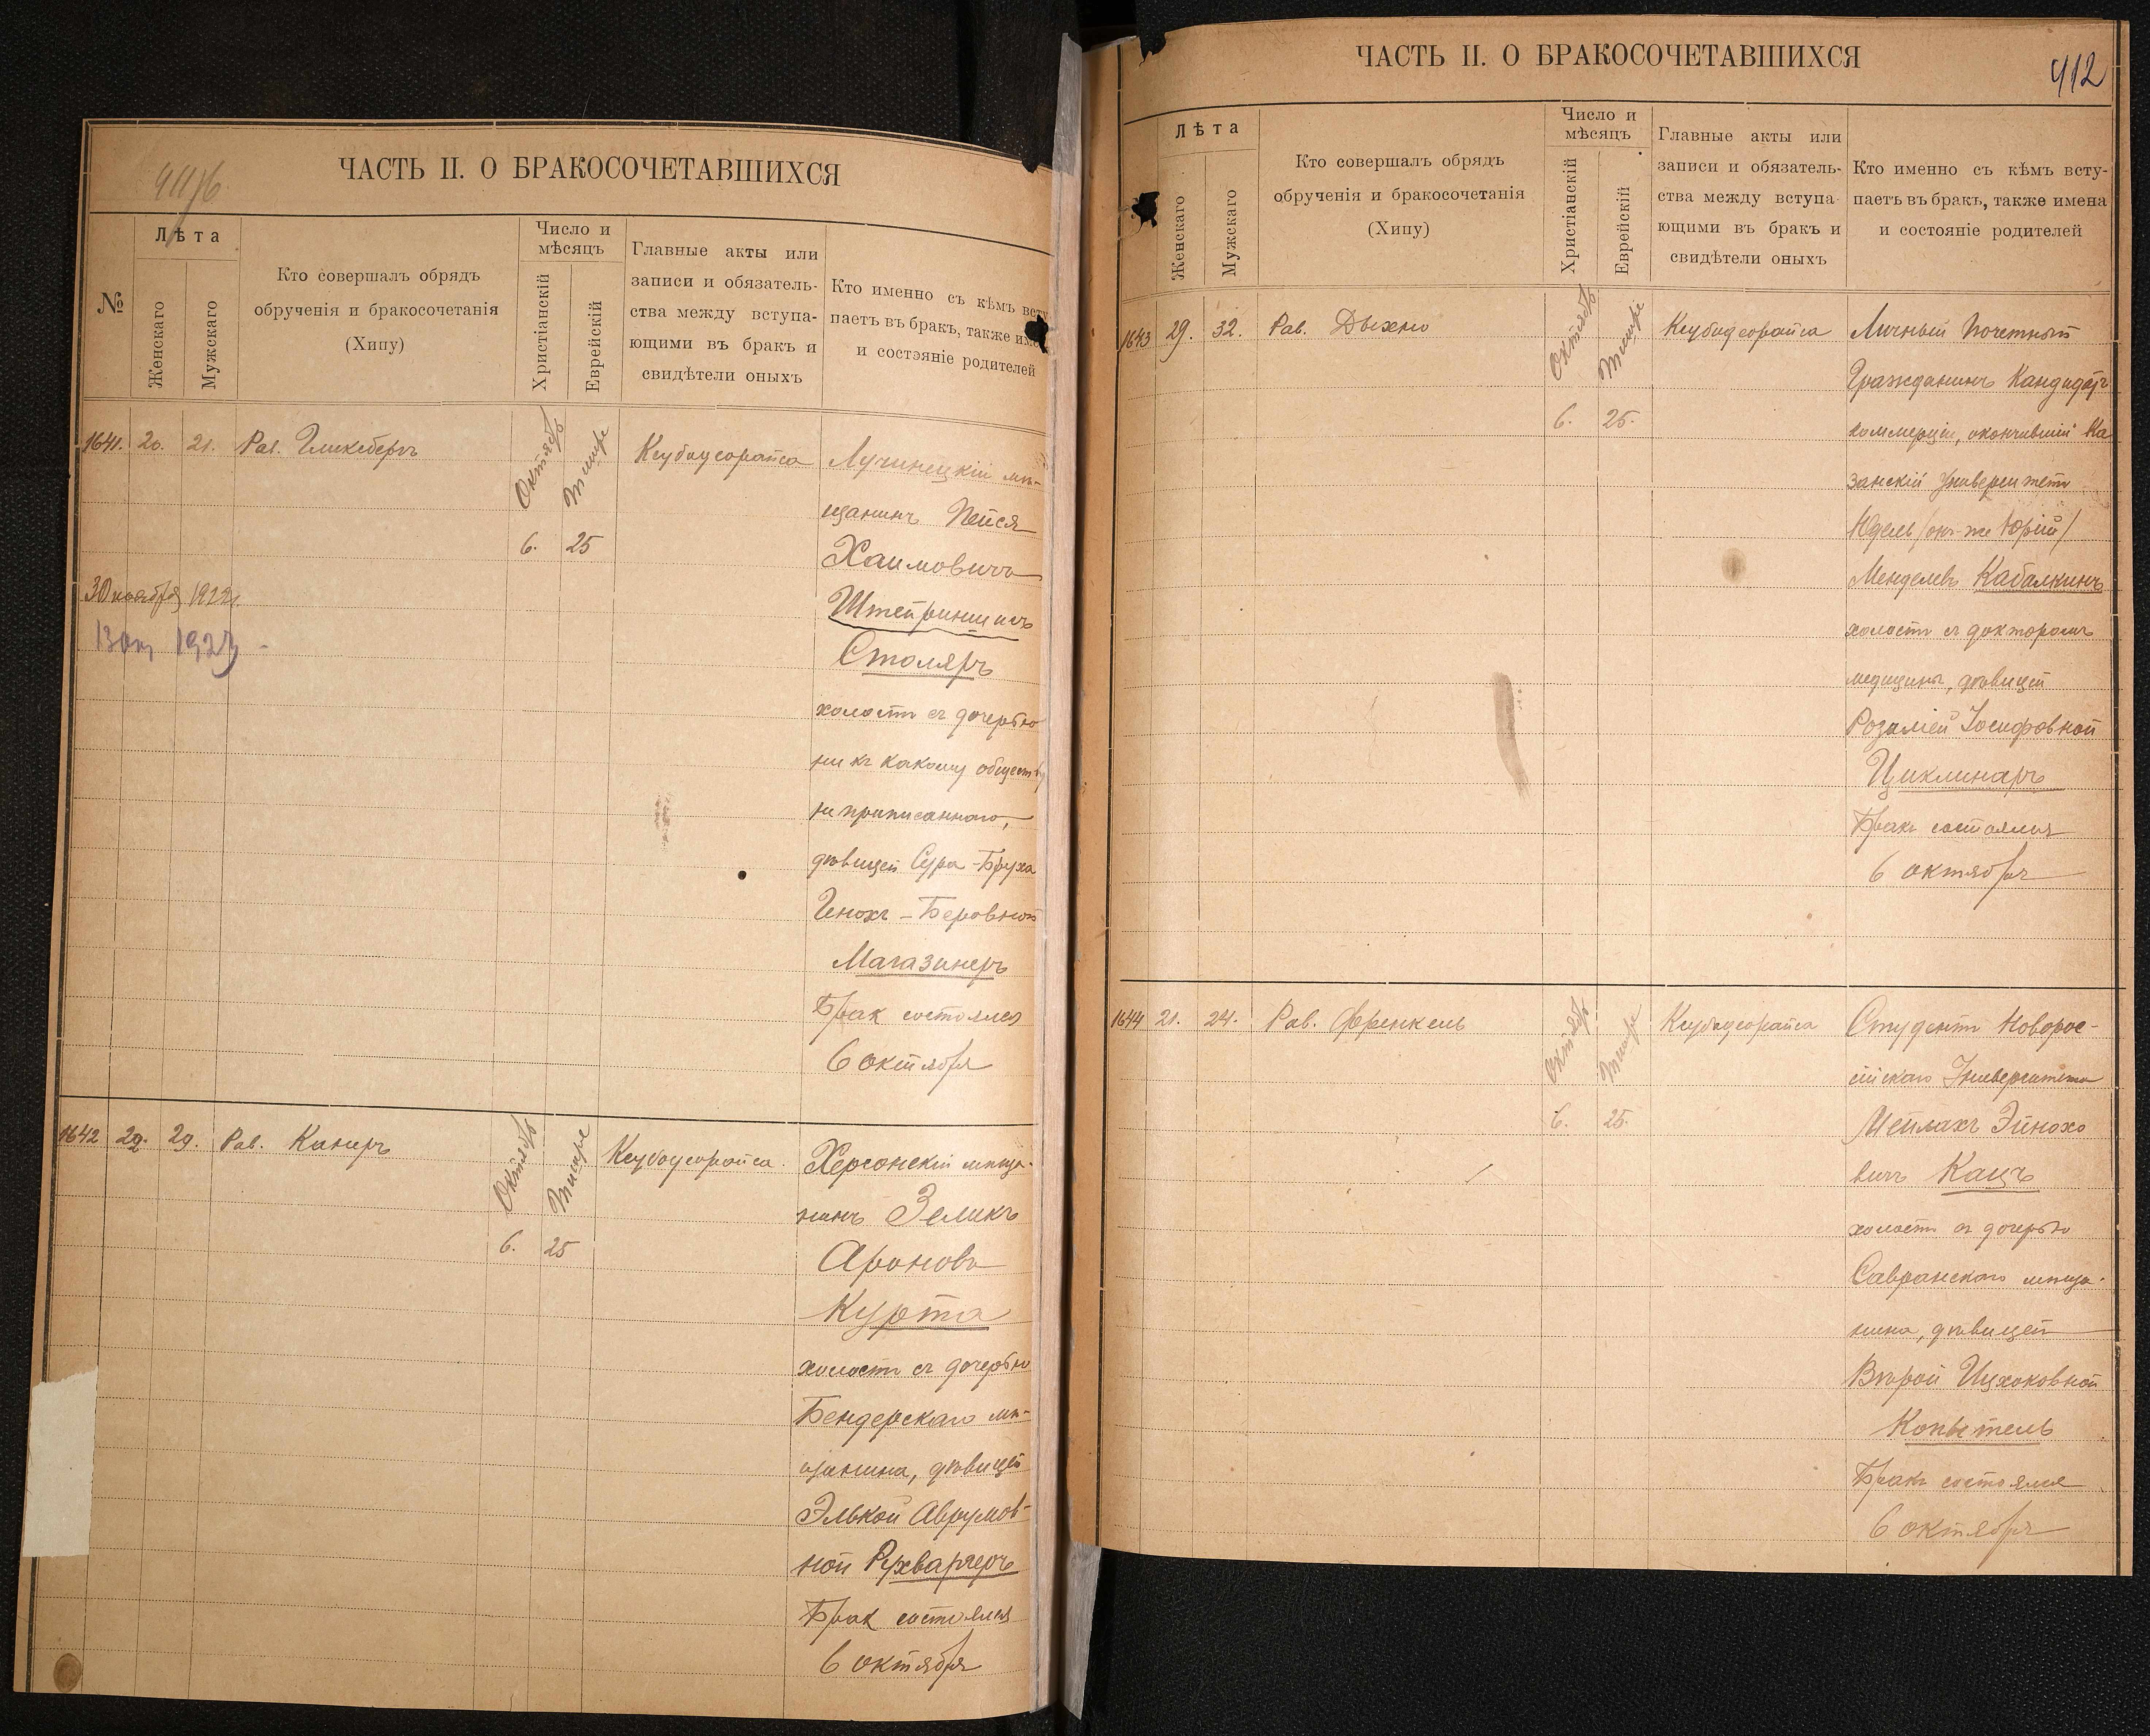 ЧАСТЬ II. О БРАКОСОЧЕТАВШИХСЯ
№
Лѣта
Женскаго
Мужскаго
Кто совершалъ обрядъ
обрученія и бракосочетанія
(Хипу)
Число и
мѣсяцъ
Христіанскій
Еврейскій
Главные акты или
записи и обязатель-
ства между вступа-
ющими въ бракъ и
свидѣтели оныхъ
Кто именно съ кѣмъ всту
паетъ въ бракъ, также име
и состояніе родителей
1641. 20. 21. Рав. Гликсбергъ
Октябрь Тишре
6. 25
Ксубодеорайса
Лучинецкій мѣ-
щанинъ Пейся
Хаимовичъ
Штейринписъ
Столяръ
холостъ съ дочерью
ни къ какому обществу
не приписаннаго,
дѣвицей Сура-Бруха
Генохъ-Беровной
Магазинеръ
Бракъ состоялся
6 октября
30 ноября 1922г.
1923
1642 22. 29. Рав. Канеръ
Октябрь Тишре
6. 25
Ксубодеорайса.
Херсонскій мѣща-
нинъ Зеликъ
Ароновъ
Курта
холостъ съ дочерью
Бендерскаго мѣ-
щанина, дѣвицей
Элькой Аврумов-
ной Рухваргеръ
Бракъ состоялся
6 октября
ЧАСТЬ II. О БРАКОСОЧЕТАВШИХСЯ
412
Лѣта
Женскаго
Мужскаго
Кто совершалъ обрядъ
обрученія и бракосочетанія
(Хипу)
Число и
мѣсяцъ
Христіанскій
Еврейскій
Главные акты или
записи и обязатель-
ства между вступа-
ющими въ бракъ и
свидѣтели оныхъ
Кто именно съ кѣмъ всту-
паетъ въ бракъ, также имена
и состояніе родителей
1643 29. 32. Рав. Дыхно
Октябрь Тишре
6. 25.
Ксубодеорайса
Личный Почетный
Гражданинъ Кандидатъ
коммерціи, окончившій Ка
занскій Университетъ
Юдель /онъ-же Юрій/
Менделевъ Кабалкинъ
холостъ съ докторомъ
медицины, дѣвицей
Розаліей Іосифовной
Циклинаръ
Бракъ состоялся
6 октября
1644 21. 24. Рав. Френкель
Октябрь Тишре
6. 25.
Ксубодеорайса
Студентъ Новорос-
сійскаго Университета
Мейлахъ Эйнохо
вичъ Кацъ
холостъ съ дочерью
Савранскаго мѣща-
нина, дѣвицей
Вѣрой Ицхоковной
Копытель
Бракъ состоялся
6 октября